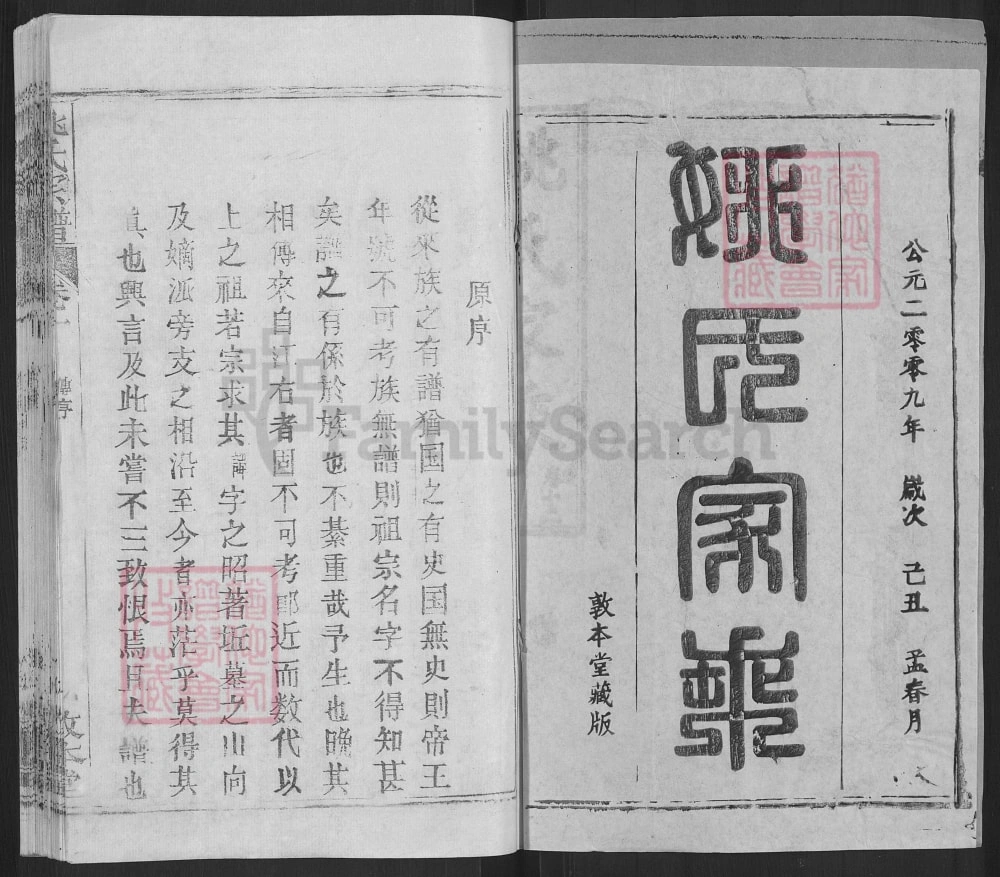 公元二零零九年 歲次 己丑 孟春月
姚氏家乘
敦本堂藏版
原序
從來族之有譜猶国之有史国無史則帝王
年號不可考族無譜則祖宗名字不得知甚
矣譜之有係於族也不綦重哉予生也晚其
相傳來自江右者固不可考即近而数代以
上之祖若宗求其諱字之昭著坵墓之山向
及嫡派旁支之相沿至今者亦茫乎莫得其
真也興言及此未嘗不三致恨焉且夫譜也
姚氏家譜 卷首 傳序 敦本堂
FamilySearch